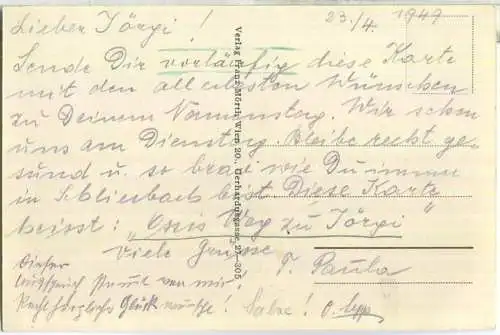 Lieber Jörgi !
23/4. 1949
Sende Dir vorläufig diese Karte
mit den allerbesten Wünschen
zu Deinem Namenstag. Wir sehen
uns am Dienstag. Bleibe recht ge-
sund u. so brav wie Du immer
in Schlierbach bist. Diese Karte
heisst: „Osris Weg zu Jörgi"
Viele Grüsse
T. Paula
Dieser
stammt von mir!
Recht herzliche Glückwünsche! Salve! O. Sepp
Verlag Franz Mörtl, Wien 20., Gerhardusgasse 25-305